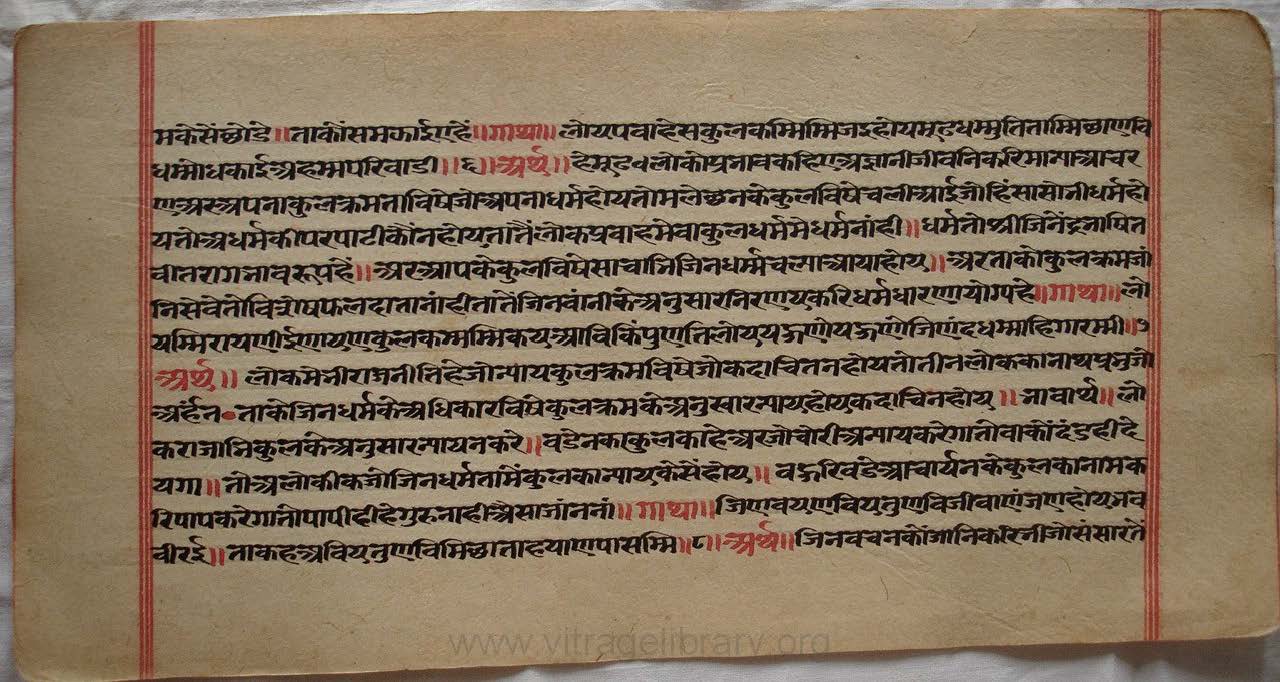 मकेसेंछोडे॥ताकोंसमकाईएहें॥गाथा॥लोयपवाहेसकुलकम्मिम्मिजइहोयमूढधम्मुतितामिछाणवि
धम्मोधकाईअहम्मपरिवाडी॥६॥अर्थ॥हेमूढवलोकोप्रभावकहिएअज्ञानीजीवनिकरिमान्याआचर
णअरअपनाकुलक्रमताविषेजोअपनाधर्महोयतोमलेछनकेकुलविषेचलीआईजोहिंसासोभीधर्महो
यतोअधर्मकीपरपाटीकौंनहोयतातैंलोकप्रवाहमेवाकुलधर्ममेधर्मनांही॥धर्मतोश्रीजिनेंद्रभाषित
वीतरागभावरूपहें॥अरआपकेकुलविषेसाचाभिजिनधर्म्मचल्याआयाहोय॥अरताकोकुलक्रमजां
निसेवेतोविशेषफलदातानांहीतातेंजिनवांनीकेअनुसारनिरणयकरिधर्मधारणायोग्यहे॥गाथा॥लो
यम्मिरायणीईणायणकुलकम्मम्मिकयआविकिंपुणतिलोयपहुणोयहुणोजिणंदधम्माहिगारम्मी॥७
अर्थ॥लोकमेभीराजनीतिहेजोन्यायकुलक्रमविषेजोकदाचितनहोयतोतीनलोककानाथप्रभुजो
अर्हंत॰ताकेजिनधर्मकेअधिकारविषेकुलक्रमकेअनुसारन्यायहोयकदाचिनहोय॥भावार्थ॥लो
कराजाभिकुलकेअनुसारन्यायनकरे॥वडेनकाकुलकाहेअरजोचोरीअन्यायकरेगातोवाकोंदंडहीदे
यगा॥तोअलोकीकजोजिनधर्मतामेंकुलकान्यायकेसेंहोय॥वहुरिवडेआचार्यनकेकुलकानामक
रिपापकरेगातोपापीहीहेगुरुनाहीऔसाजांननां॥गाथा॥जिणवयणवियतुणविजीवाणंजणहोयभव
वीरई॥ताकहअवियतुणविमिछाताहयाणपासम्मि॥८॥अर्थ॥जिनवचनकोंजानिकरिभीजोसंसारते
www.vitragelibrary.org